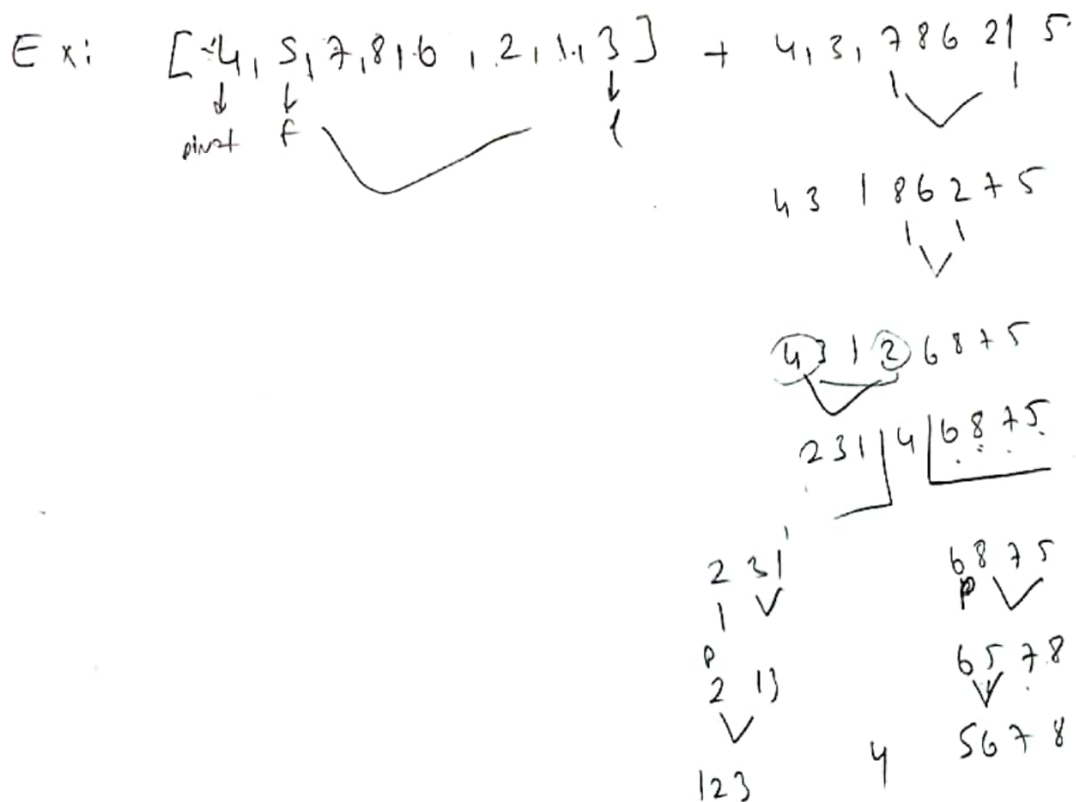 Ex: [4, 5, 7, 8, 6, 2, 1, 3] + 4, 3, 7 8 6 2 1 5
pivot f l
4 3 1 8 6 2 7 5
4 3 1 2 6 8 7 5
2 3 1 | 4 | 6 8 7 5
2 3 1 6 8 7 5
P
6 5 7 8
P
2 1 3
5 6 7 8
4
1 2 3